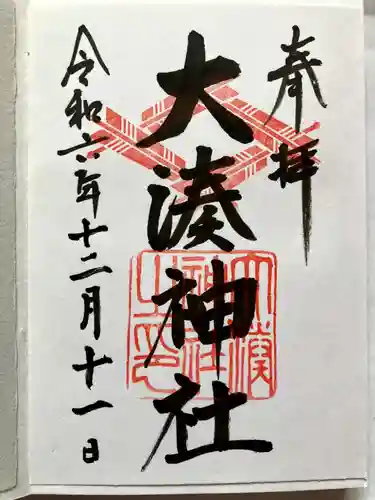 奉拝
大湊神社
大湊
神社
之印
令和六年十二月十一日